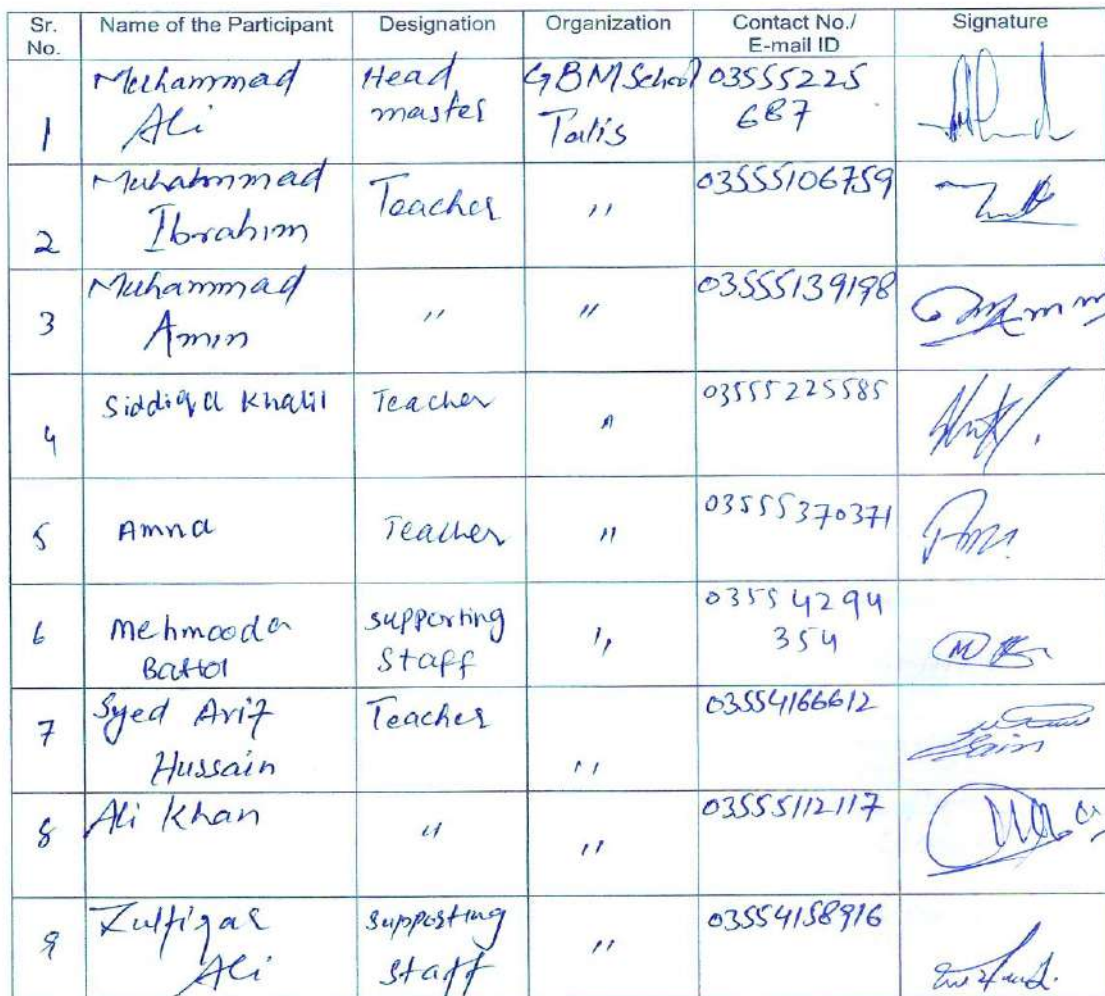 Sr. No. Name of the Participant Designation Organization Contact No./ E-mail ID Signature
1 Muhammad Ali Head master GBM School Talis 03555225687
2 Muhammad Ibrahim Teacher " 03555106759
3 Muhammad Amin " " 03555139198
4 Siddiqa Khalil Teacher " 03555225585
5 Amna Teacher " 03555370371
6 Mehmooda Battol supporting staff " 03554294354
7 Syed Arif Hussain Teacher " 03554166612
8 Ali Khan " " 03555112117
9 Zulfiqar Ali supporting staff " 03554158916